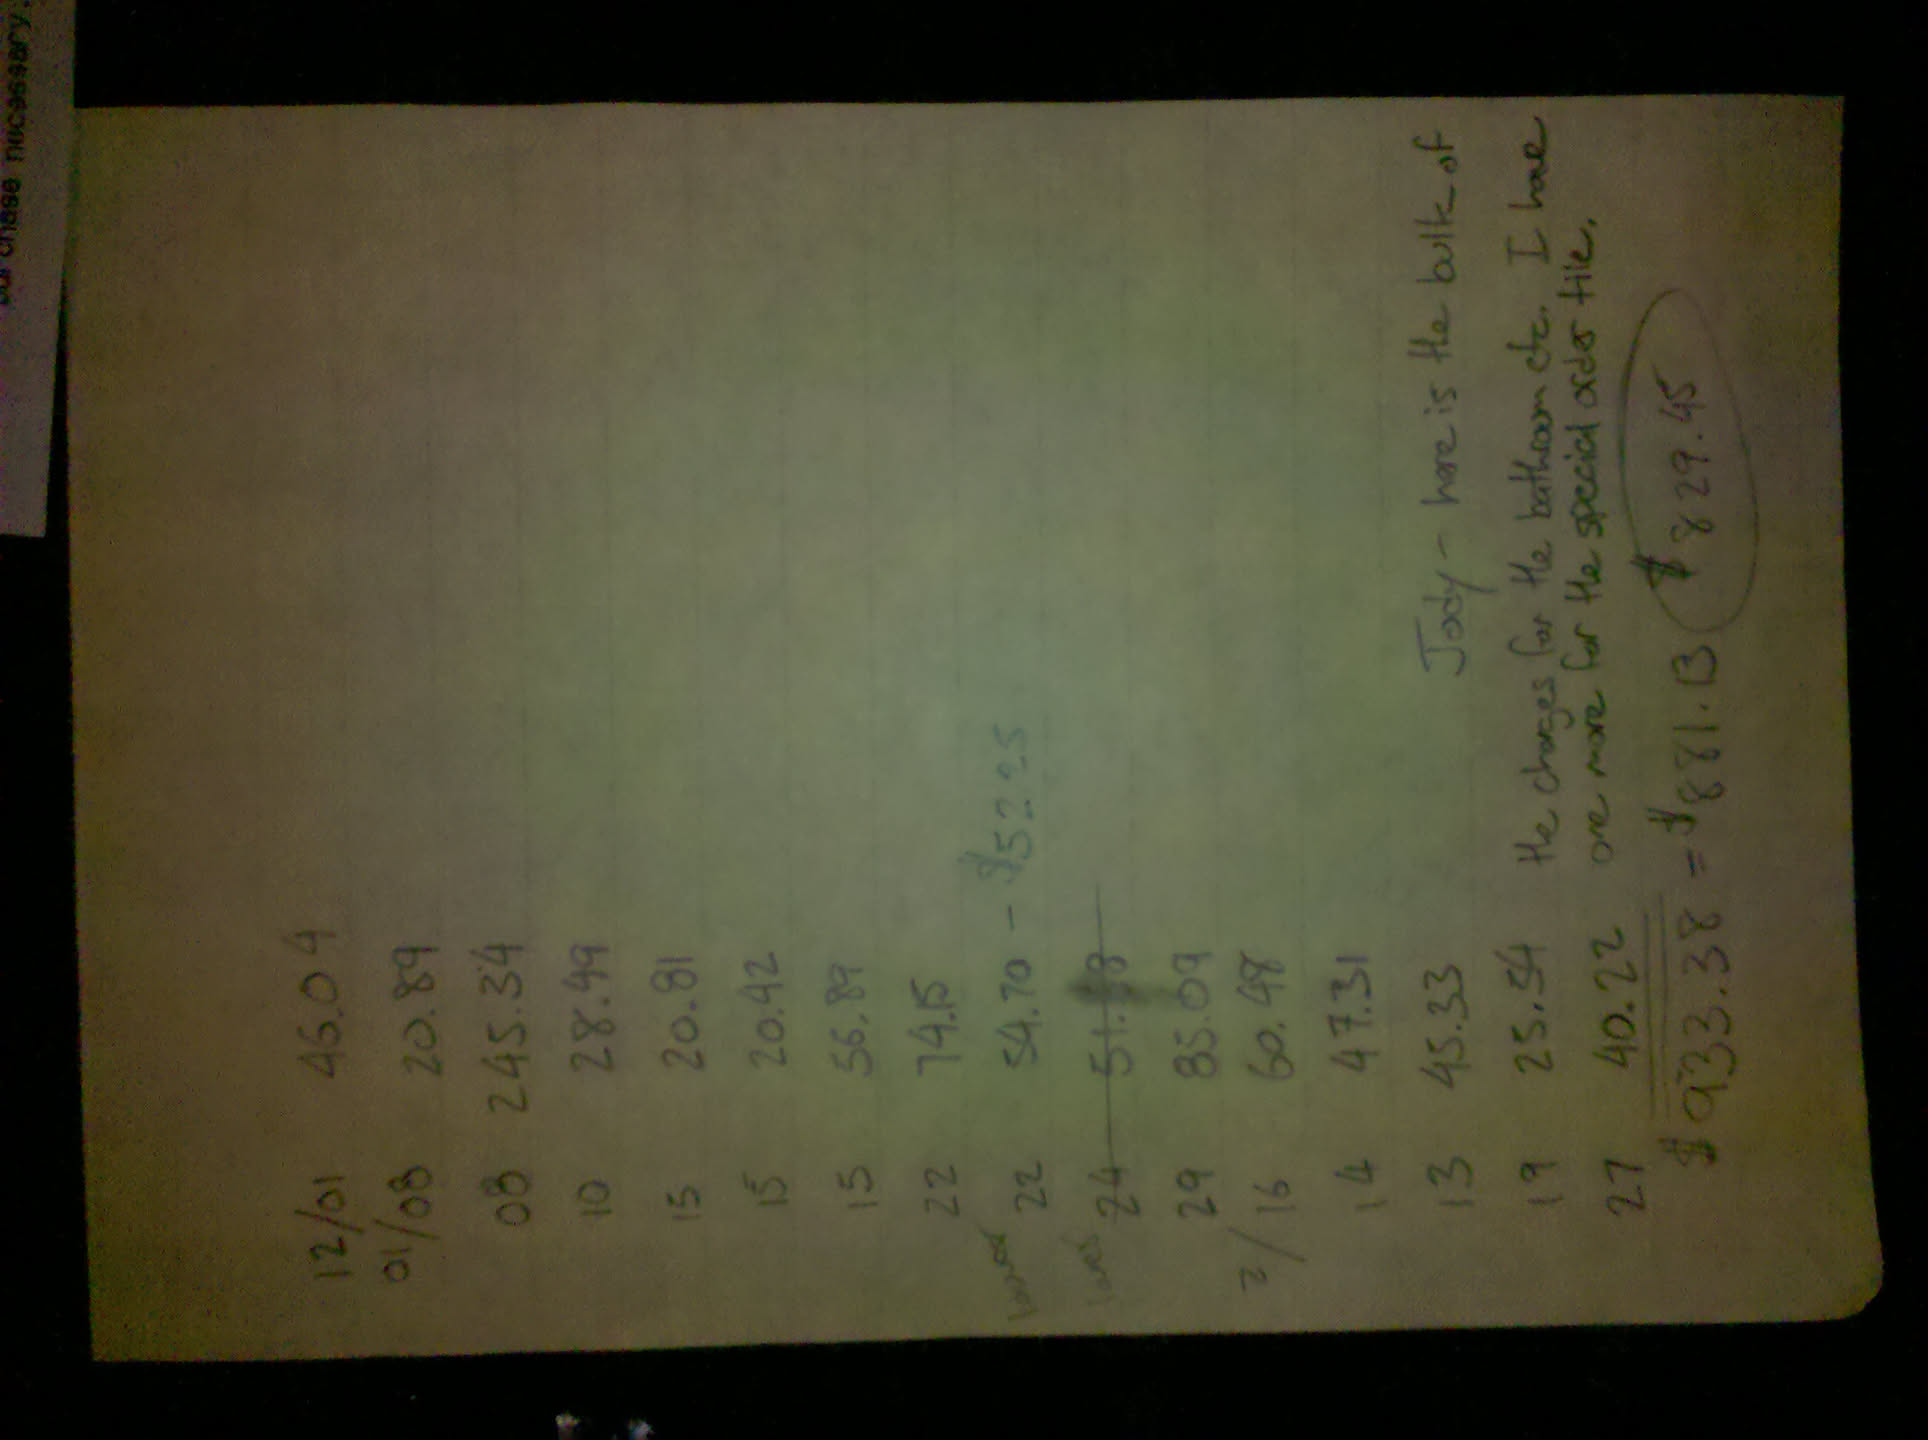 chase necessary.
12/01 46.04
01/08 20.89
08 245.34
10 28.49
15 20.81
15 20.42
15 56.89
22 74.15
22 54.70 - $52.25
lowes 24 51.98
29 85.09
2/16 60.48
14 47.31
13 45.33
19 25.54
27 40.22
$933.38 = $881.13 $829.45
Jody - here is the bulk of
the charges for the bathroom etc. I have
one more for the special order tile.